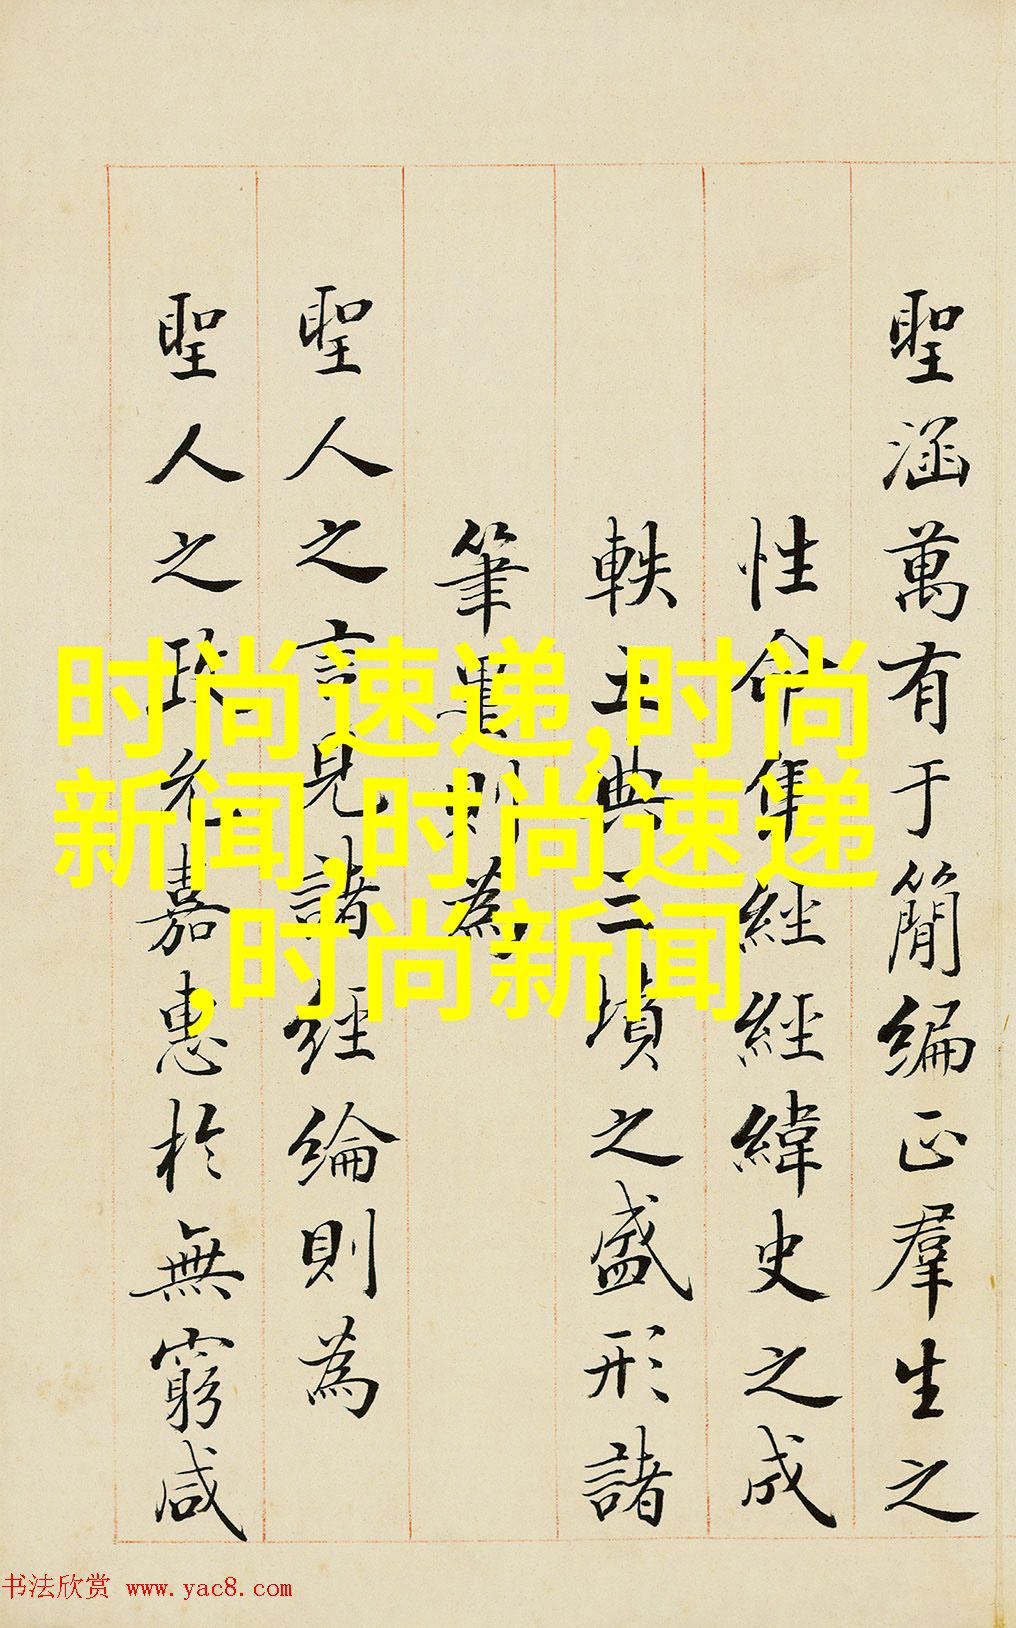 聖涵萬有于簡編正羣生之
性命集經經緯史之成
軼五典三墳之盛形諸
筆墨則為
聖人之言見諸經綸則為
聖人之政允嘉惠於無窮咸
时尚速递,时尚
新闻,时尚速递
,时尚新闻
书法欣赏 www.yac8.com